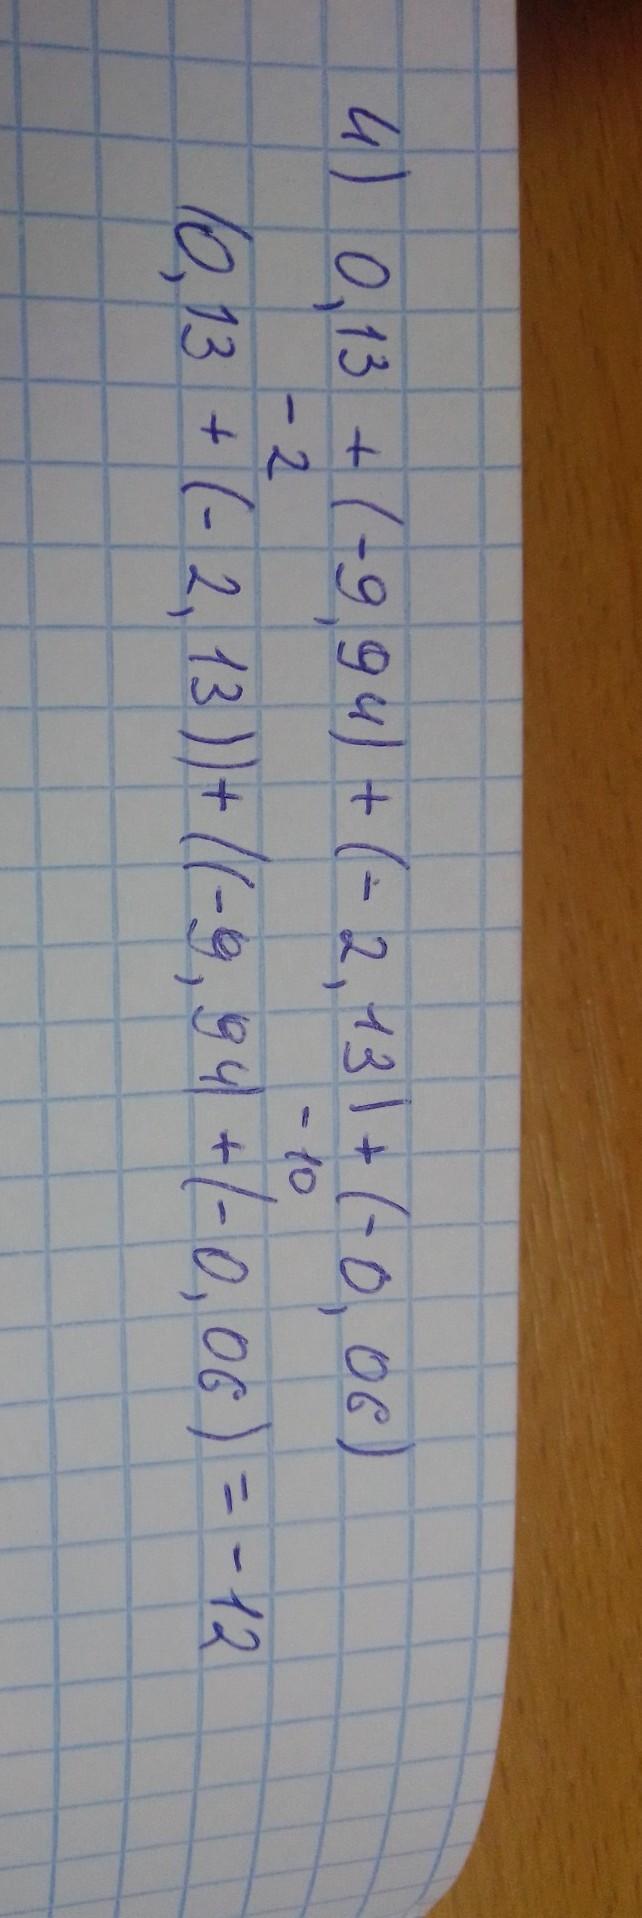 4) 0,13 + (-9,94) + (-2,13) + (-0,06)
-2 -10
(0,13 + (-2,13)) + ((-9,94) + (-0,06) = -12